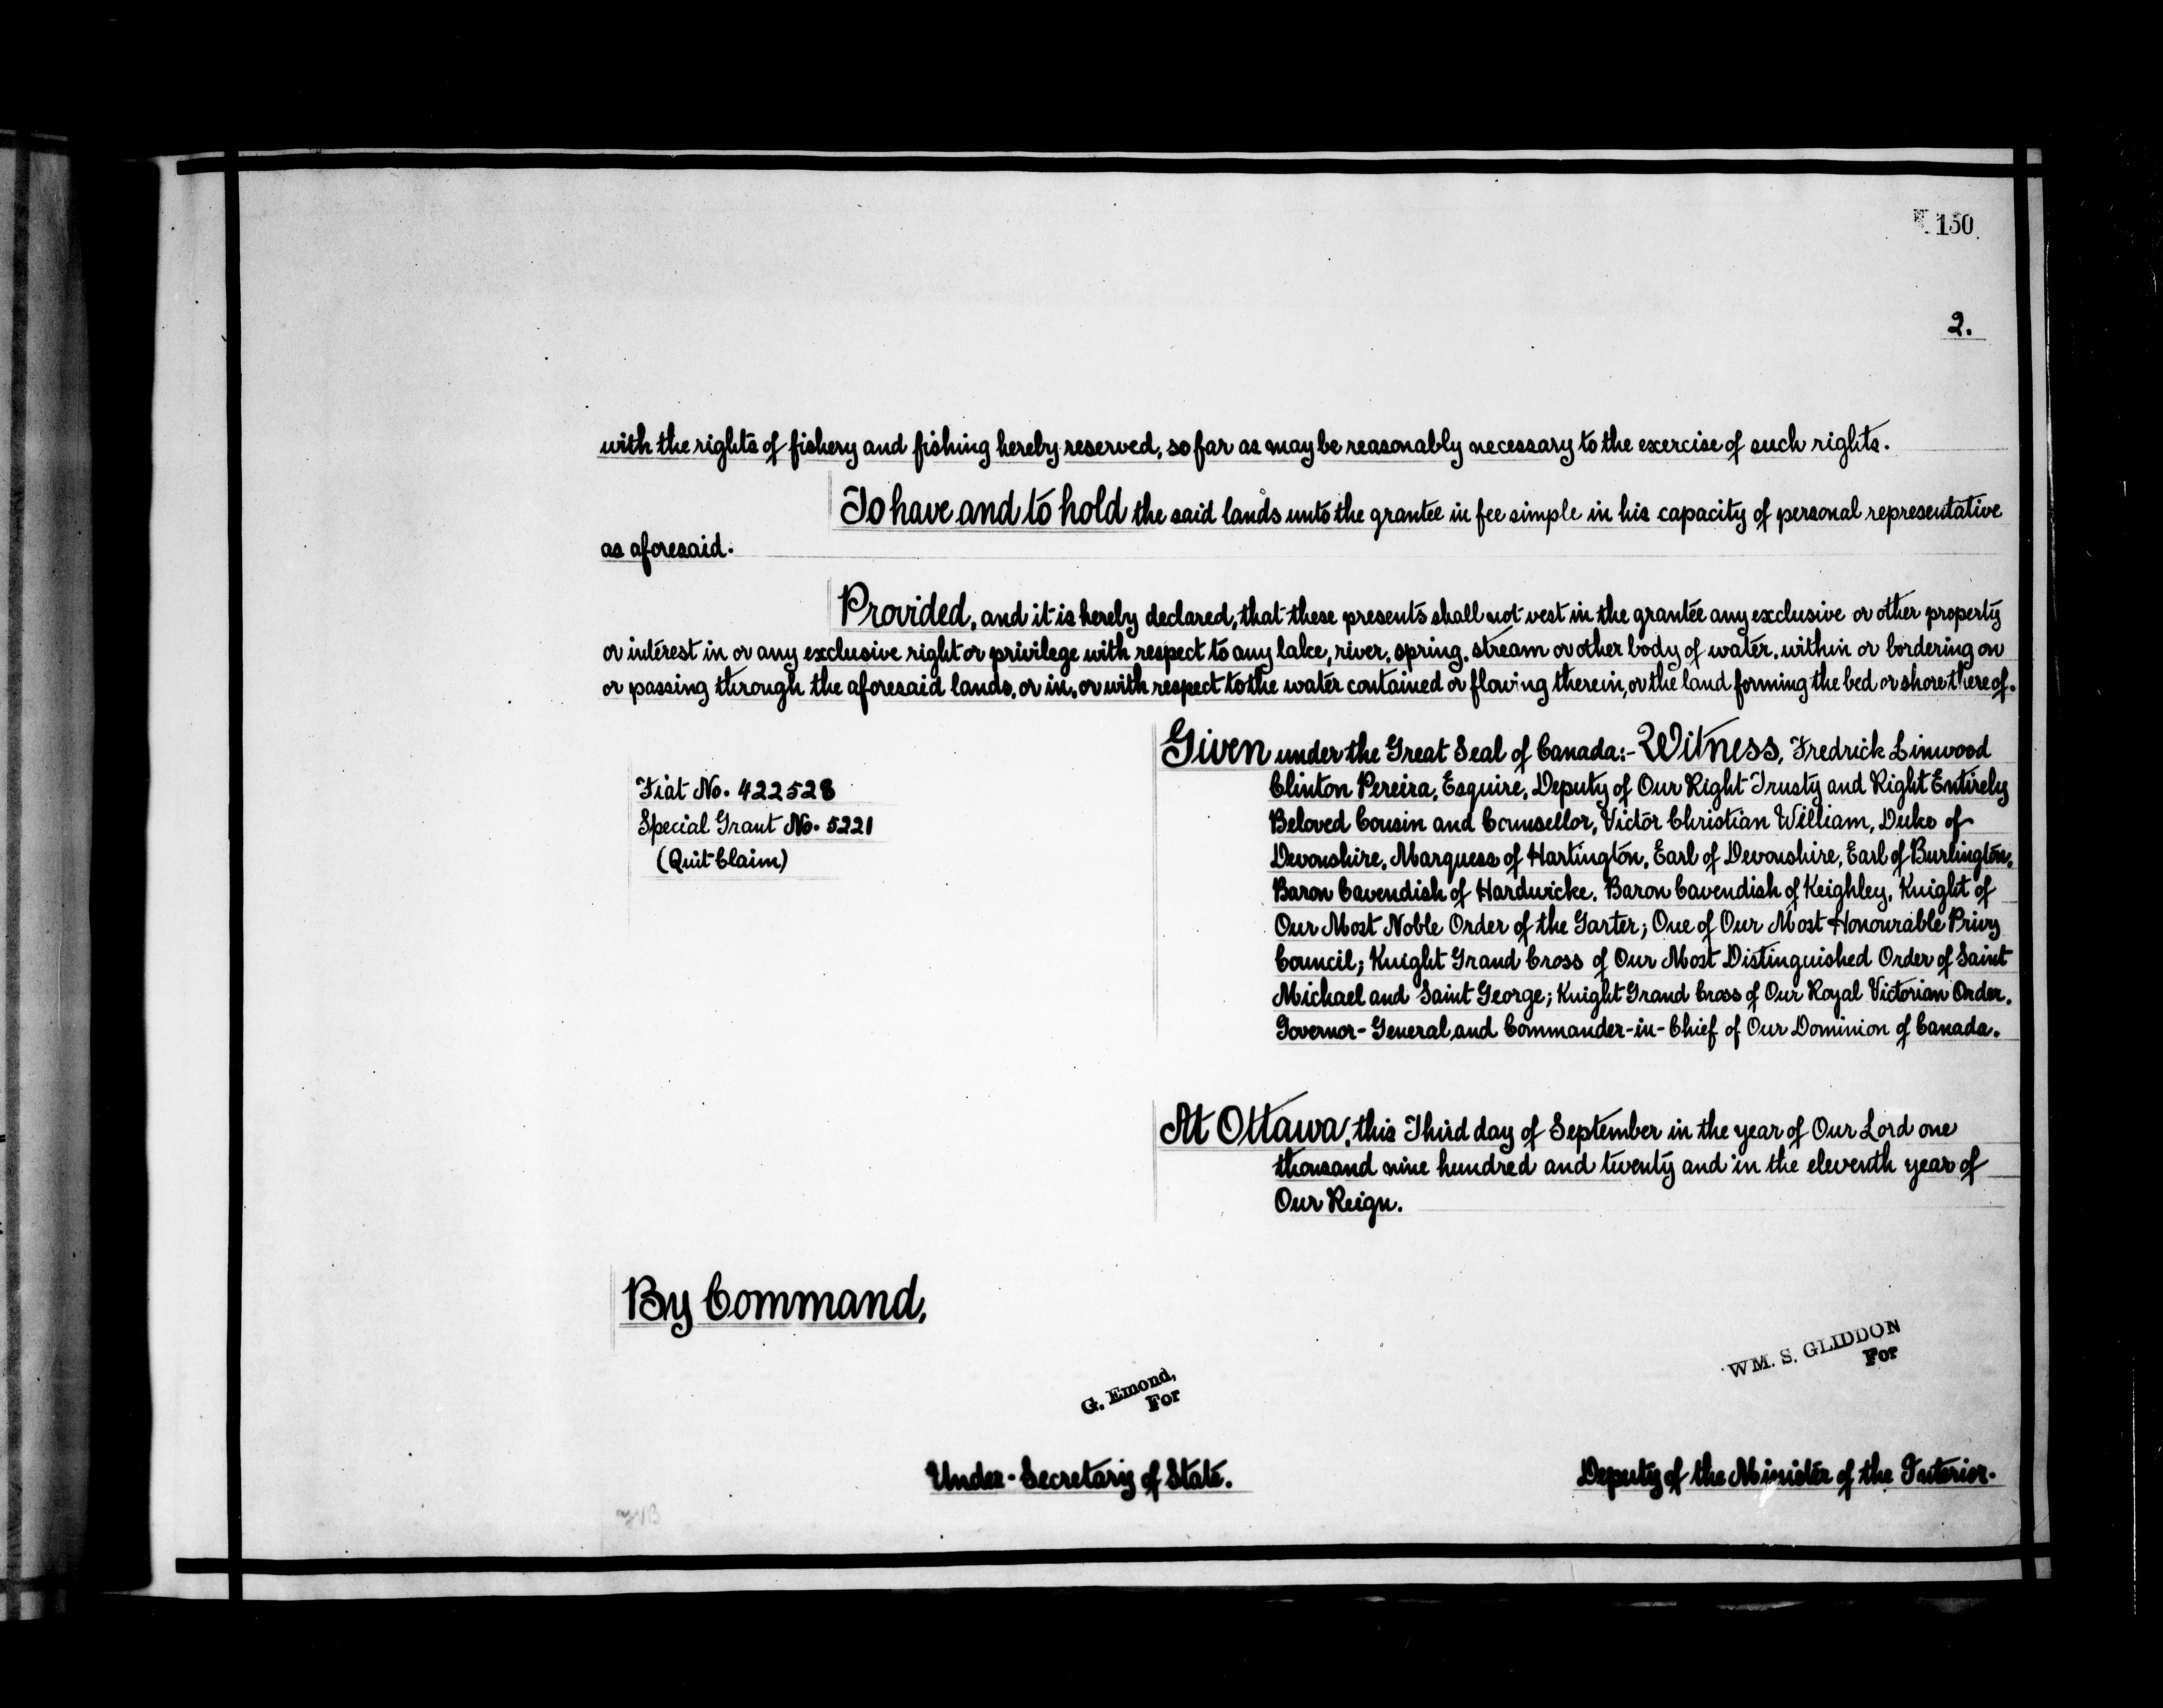 150
2.
with the rights of fishery and fishing hereby reserved, so far as may be reasonably necessary to the exercise of such rights.
To have and to hold the said lands unto the grantee in fee simple in his capacity of personal representative
as aforesaid.
Provided, and it is hereby declared, that these presents shall not vest in the grantee any exclusive or other property
or interest in or any exclusive right or privilege with respect to any lake, river, spring, stream or other body of water, within or bordering on
or passing through the aforesaid lands, or in, or with respect to the water contained or flowing therein, or the land forming the bed or shore thereof.
Given under the Great Seal of Canada:- Witness, Fredrick Linwood
Clinton Pereira, Esquire, Deputy of Our Right Trusty and Right Entirely
Beloved Cousin and Counsellor, Victor Christian William, Duke of
Devonshire, Marquess of Hartington, Earl of Devonshire, Earl of Burlington,
Baron Cavendish of Hardwicke, Baron Cavendish of Keighley, Knight of
Our Most Noble Order of the Garter; One of Our Most Honourable Privy
Council; Knight Grand Cross of Our Most Distinguished Order of Saint
Michael and Saint George; Knight Grand Cross of Our Royal Victorian Order,
Governor-General and Commander-in-Chief of Our Dominion of Canada.
Fiat No. 422528
Special Grant No. 5221
(Quit Claim)
At Ottawa, this Third day of September in the year of Our Lord one
thousand nine hundred and twenty and in the eleventh year of
Our Reign.
By Command,
WM. S. GLIDDON
For
G. Emond,
For
Under-Secretary of State.
Deputy of the Minister of the Interior.